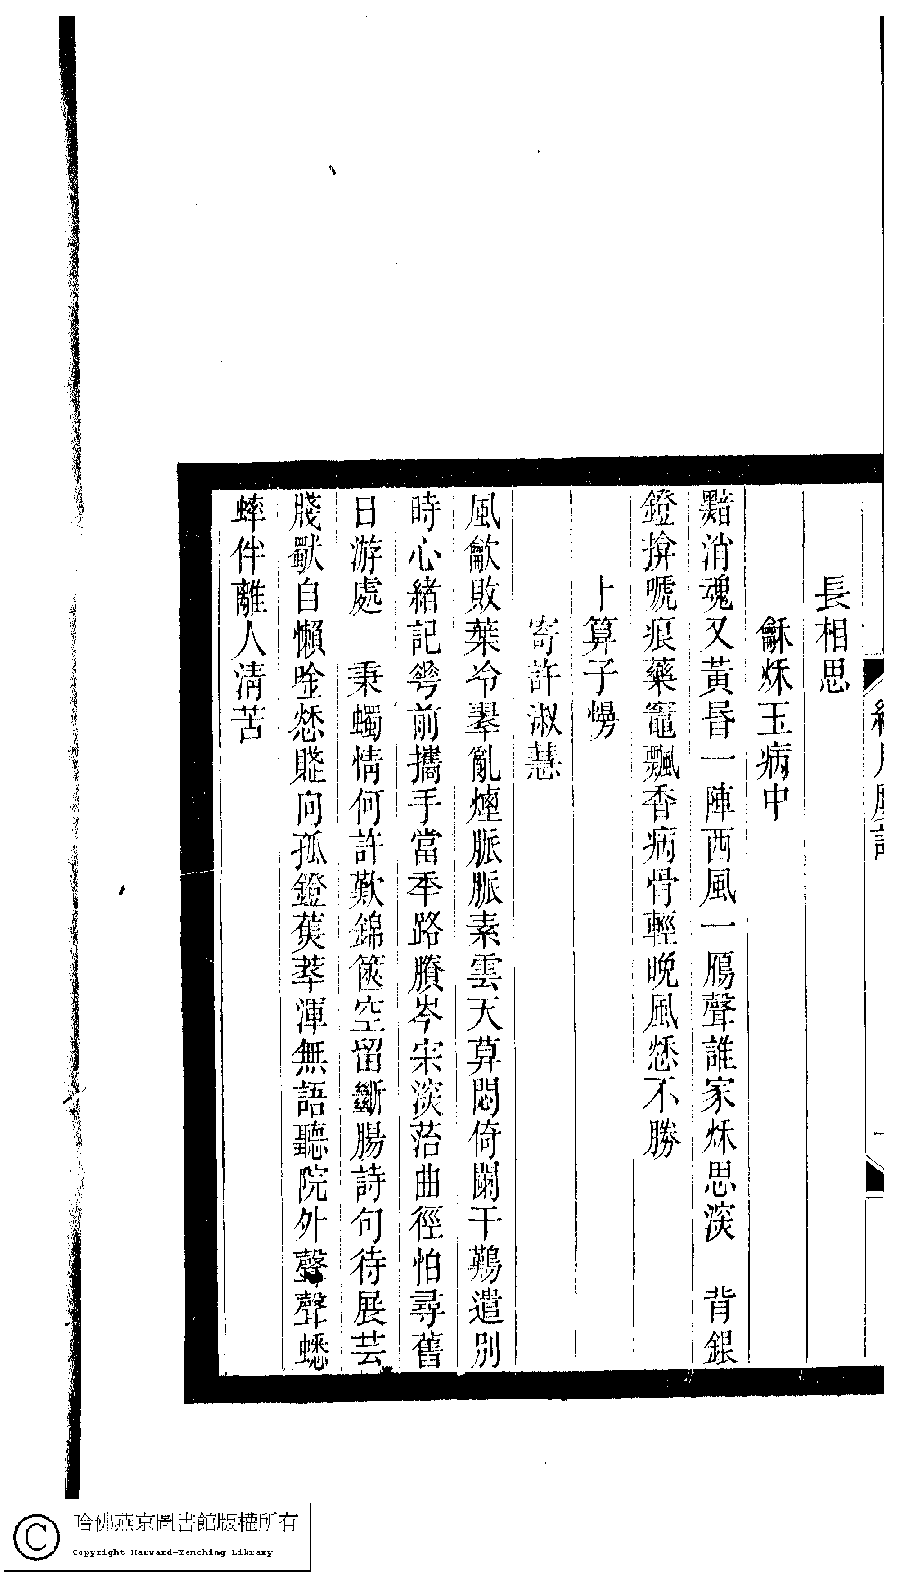 長相思
龢秌玉病中
黯消魂又黃昏一陣西風一鴈聲誰家秌思深　背銀
鐙揜唬痕藥竈飄香病骨輕晚風愁不勝
卜算子慢
寄許淑慧
風歙敗葉冷翠亂煙脈脈素雲天算悶倚闌干鷄遣別
時心緒記夸前攜手當秊路賸岑宋淡苔曲徑怕尋舊
日游處　秉蠋情何許歎錦篋空留斷腸詩句待展芸
牋獸自懶唫愁賤向孤鐙萸萃渾無語聽院外聲聲蟋
蟀伴離人清苦
哈佛燕京圖書館版權所有
Copyright Harvard-Yenching Library